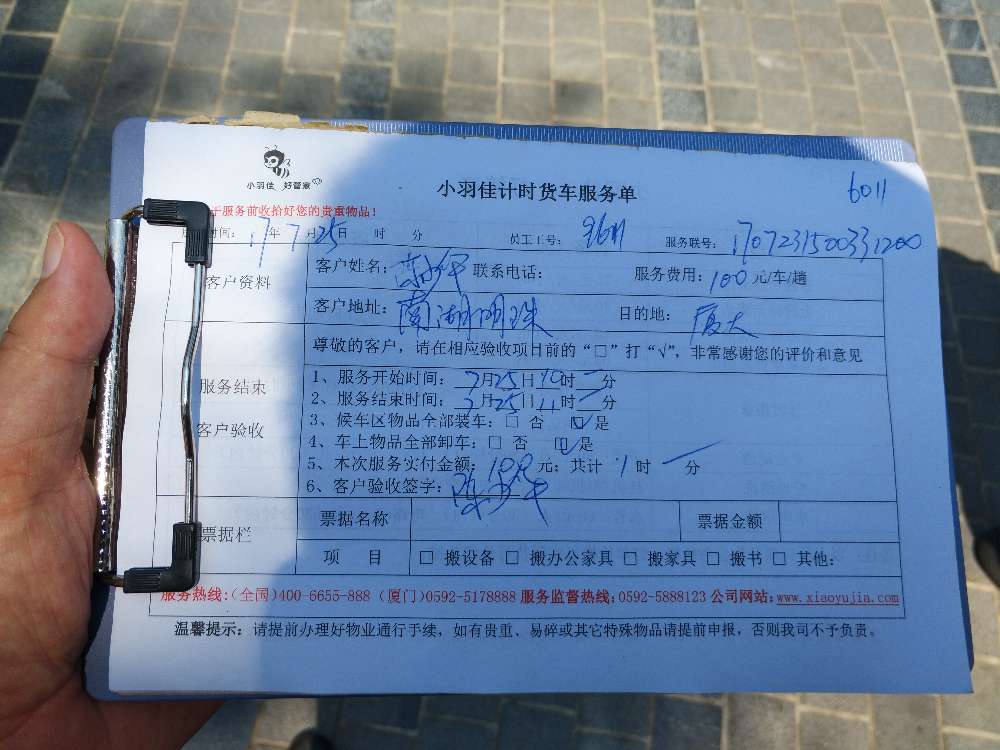 小羽佳 好管家
小羽佳计时货车服务单
6011
于服务前收拾好您的贵重物品!
时间: 17年7月25日 时 分 员工工号: 9611 服务联号: 1707231500331200
客户资料
客户姓名: 联系电话: 服务费用: 100元/车/趟
客户地址: 南湖明珠 目的地: 厦大
服务结束
客户验收
尊敬的客户, 请在相应验收项目前的“□”打“√”, 非常感谢您的评价和意见
1、服务开始时间: 7月25日10时一分
2、服务结束时间: 7月25日11时一分
3、候车区物品全部装车: □ 否 ☑是
4、车上物品全部卸车: □ 否 ☑是
5、本次服务实付金额: 100元; 共计 1时一分
6、客户验收签字:
票据栏
票据名称 票据金额
项 目 □ 搬设备 □ 搬办公家具 □ 搬家具 □ 搬书 □ 其他:
服务热线:(全国)400-6655-888 (厦门)0592-5178888 服务监督热线:0592-5888123 公司网站:www.xiaoyujia.com
温馨提示: 请提前办理好物业通行手续, 如有贵重、易碎或其它特殊物品请提前申报, 否则我司不予负责。